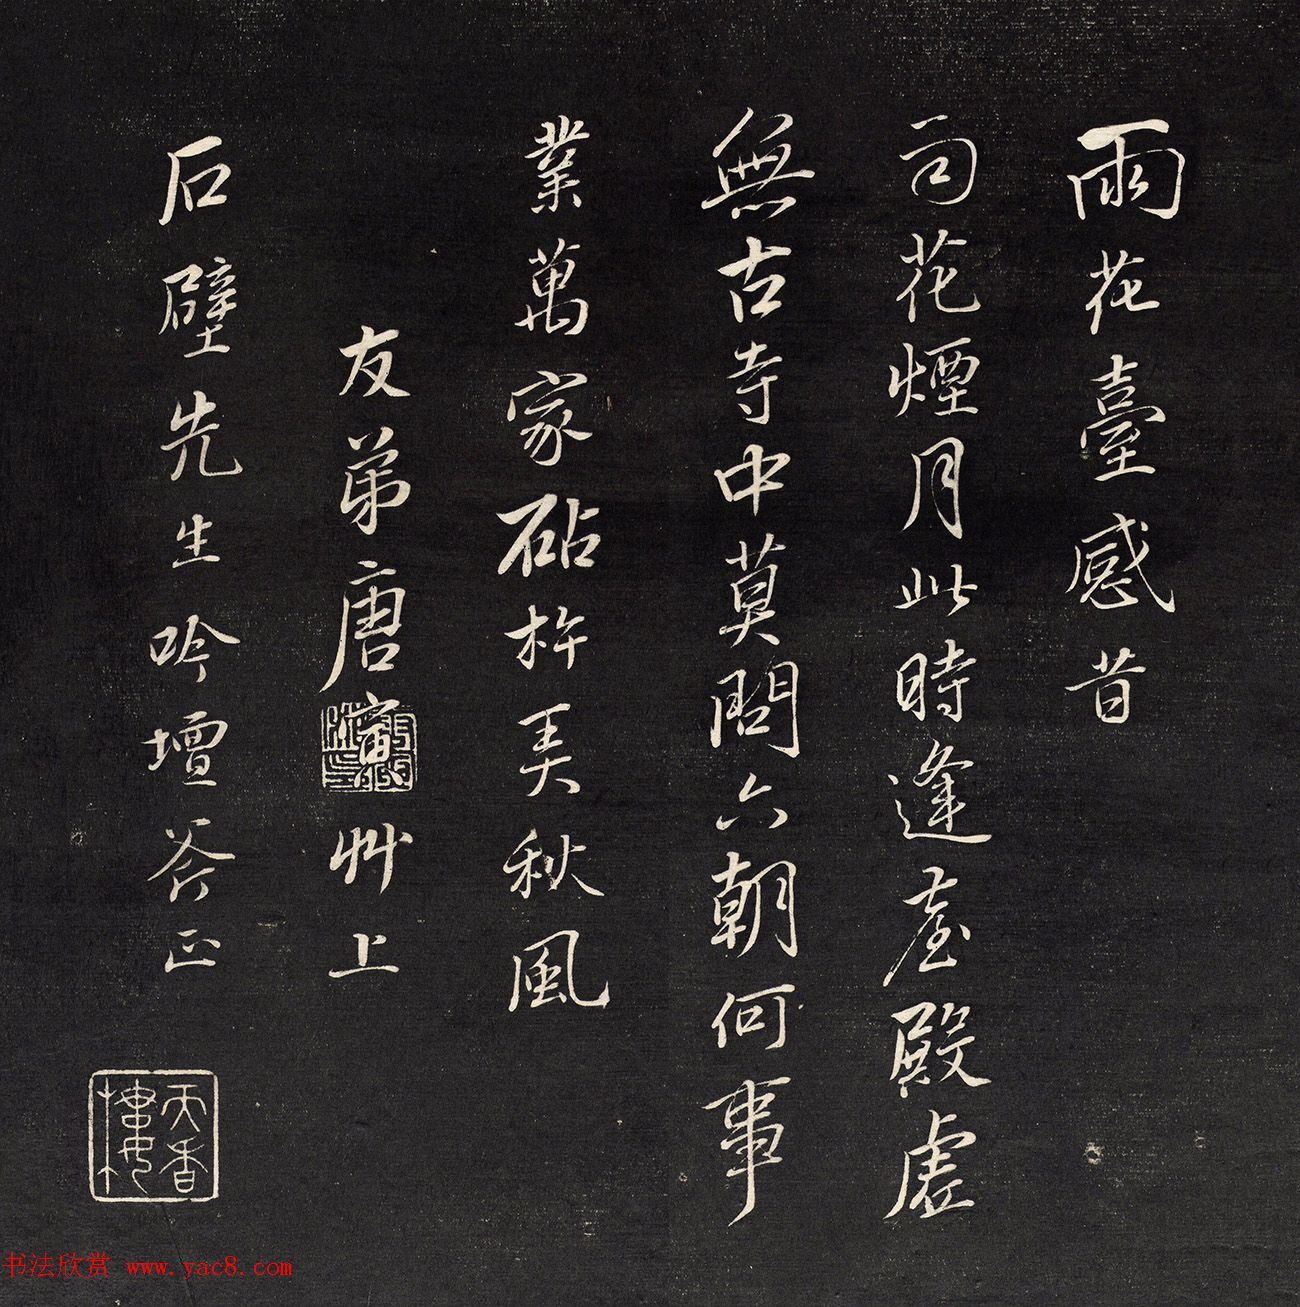 雨花臺感昔
司花煙月此時逢臺殿虛
無古寺中莫問六朝何事
業萬家砧杵美秋風
友弟唐寅艸上
石壁先生吟壇斧正
天香樓
书法欣赏 www.yac8.com